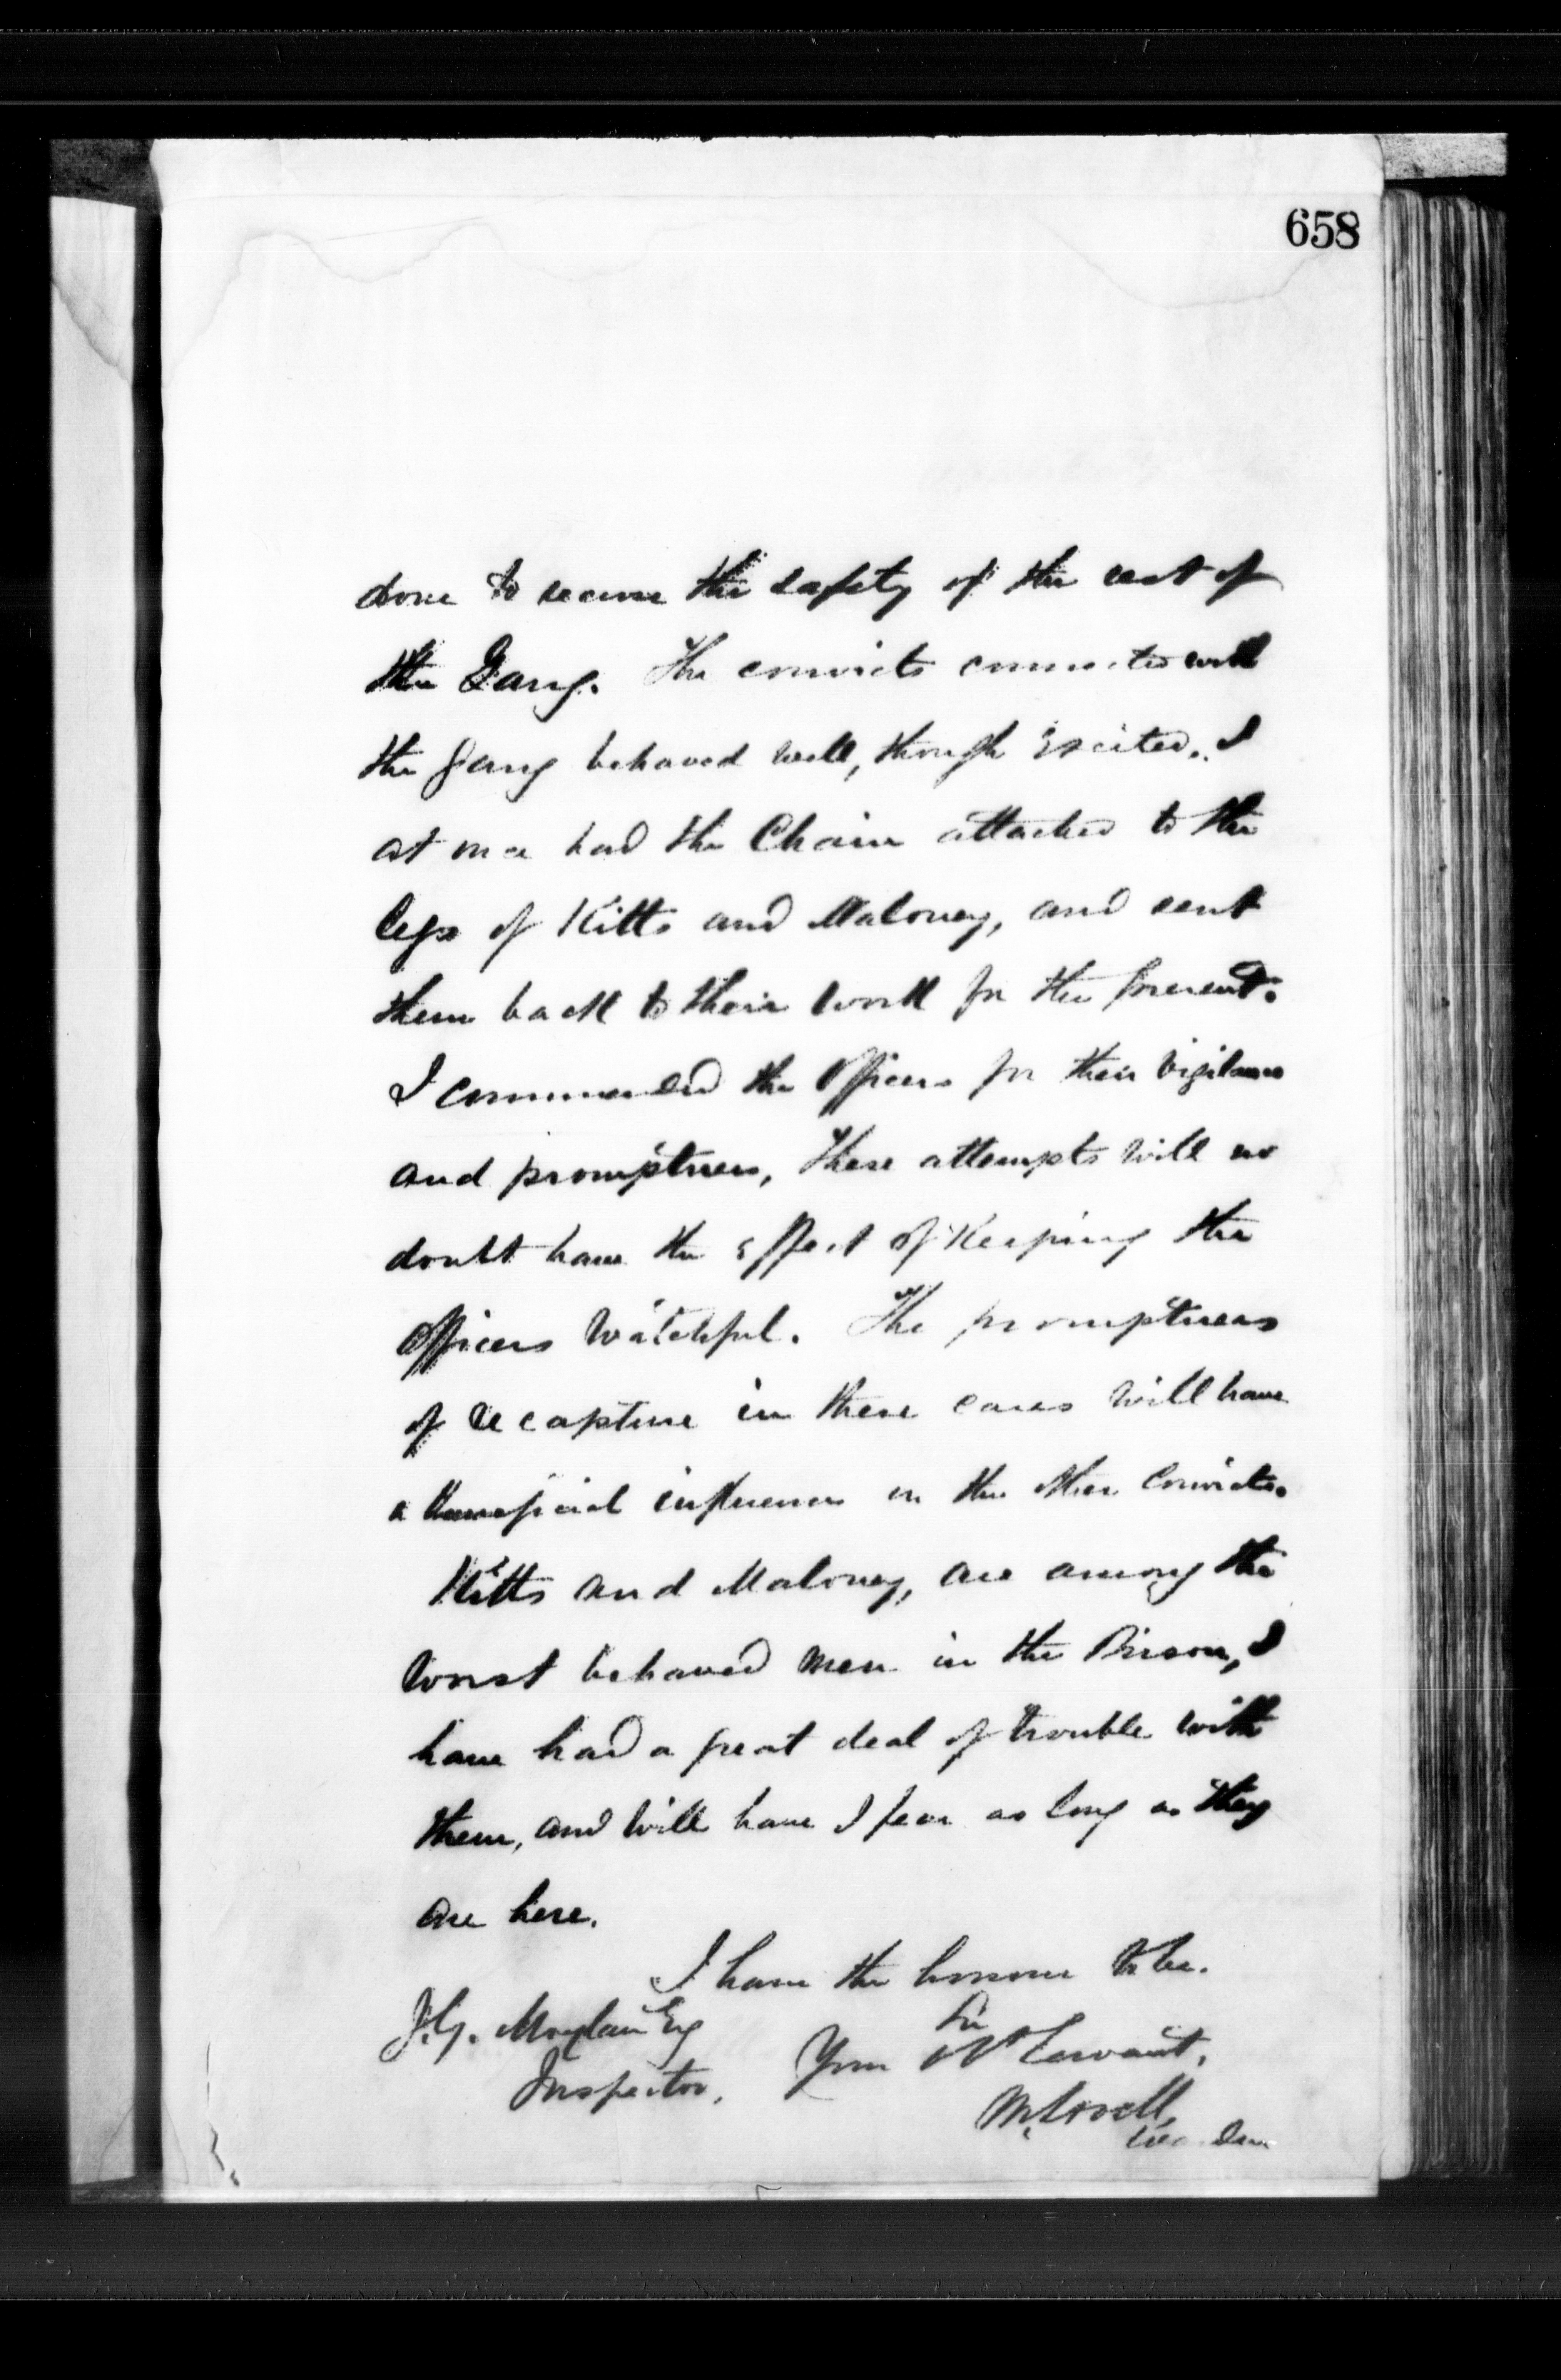 658
done to secure the safety of the rest of
the Gang. The convicts connected with
the Gang behaved well, though Excited. I
at once had the Chain attached to the
legs of Kitts and Maloney, and sent
them back to their work for the present.
I commended the Officers for their vigilance
and promptness, These attempts will no
doubt have the Effect of Keeping the
Officers watchful. The promptness
of recapture in these cases will have
a beneficial influence on the other Convicts.
Kitts and Maloney, are among the
worst behaved men in the Prison, I
have had a great deal of trouble with
them, and will have I fear as long as they
are here.
I have the honour to be.
Sir
J.G. Moylan Esq
Your Ob Servant,
Inspector,
Warden